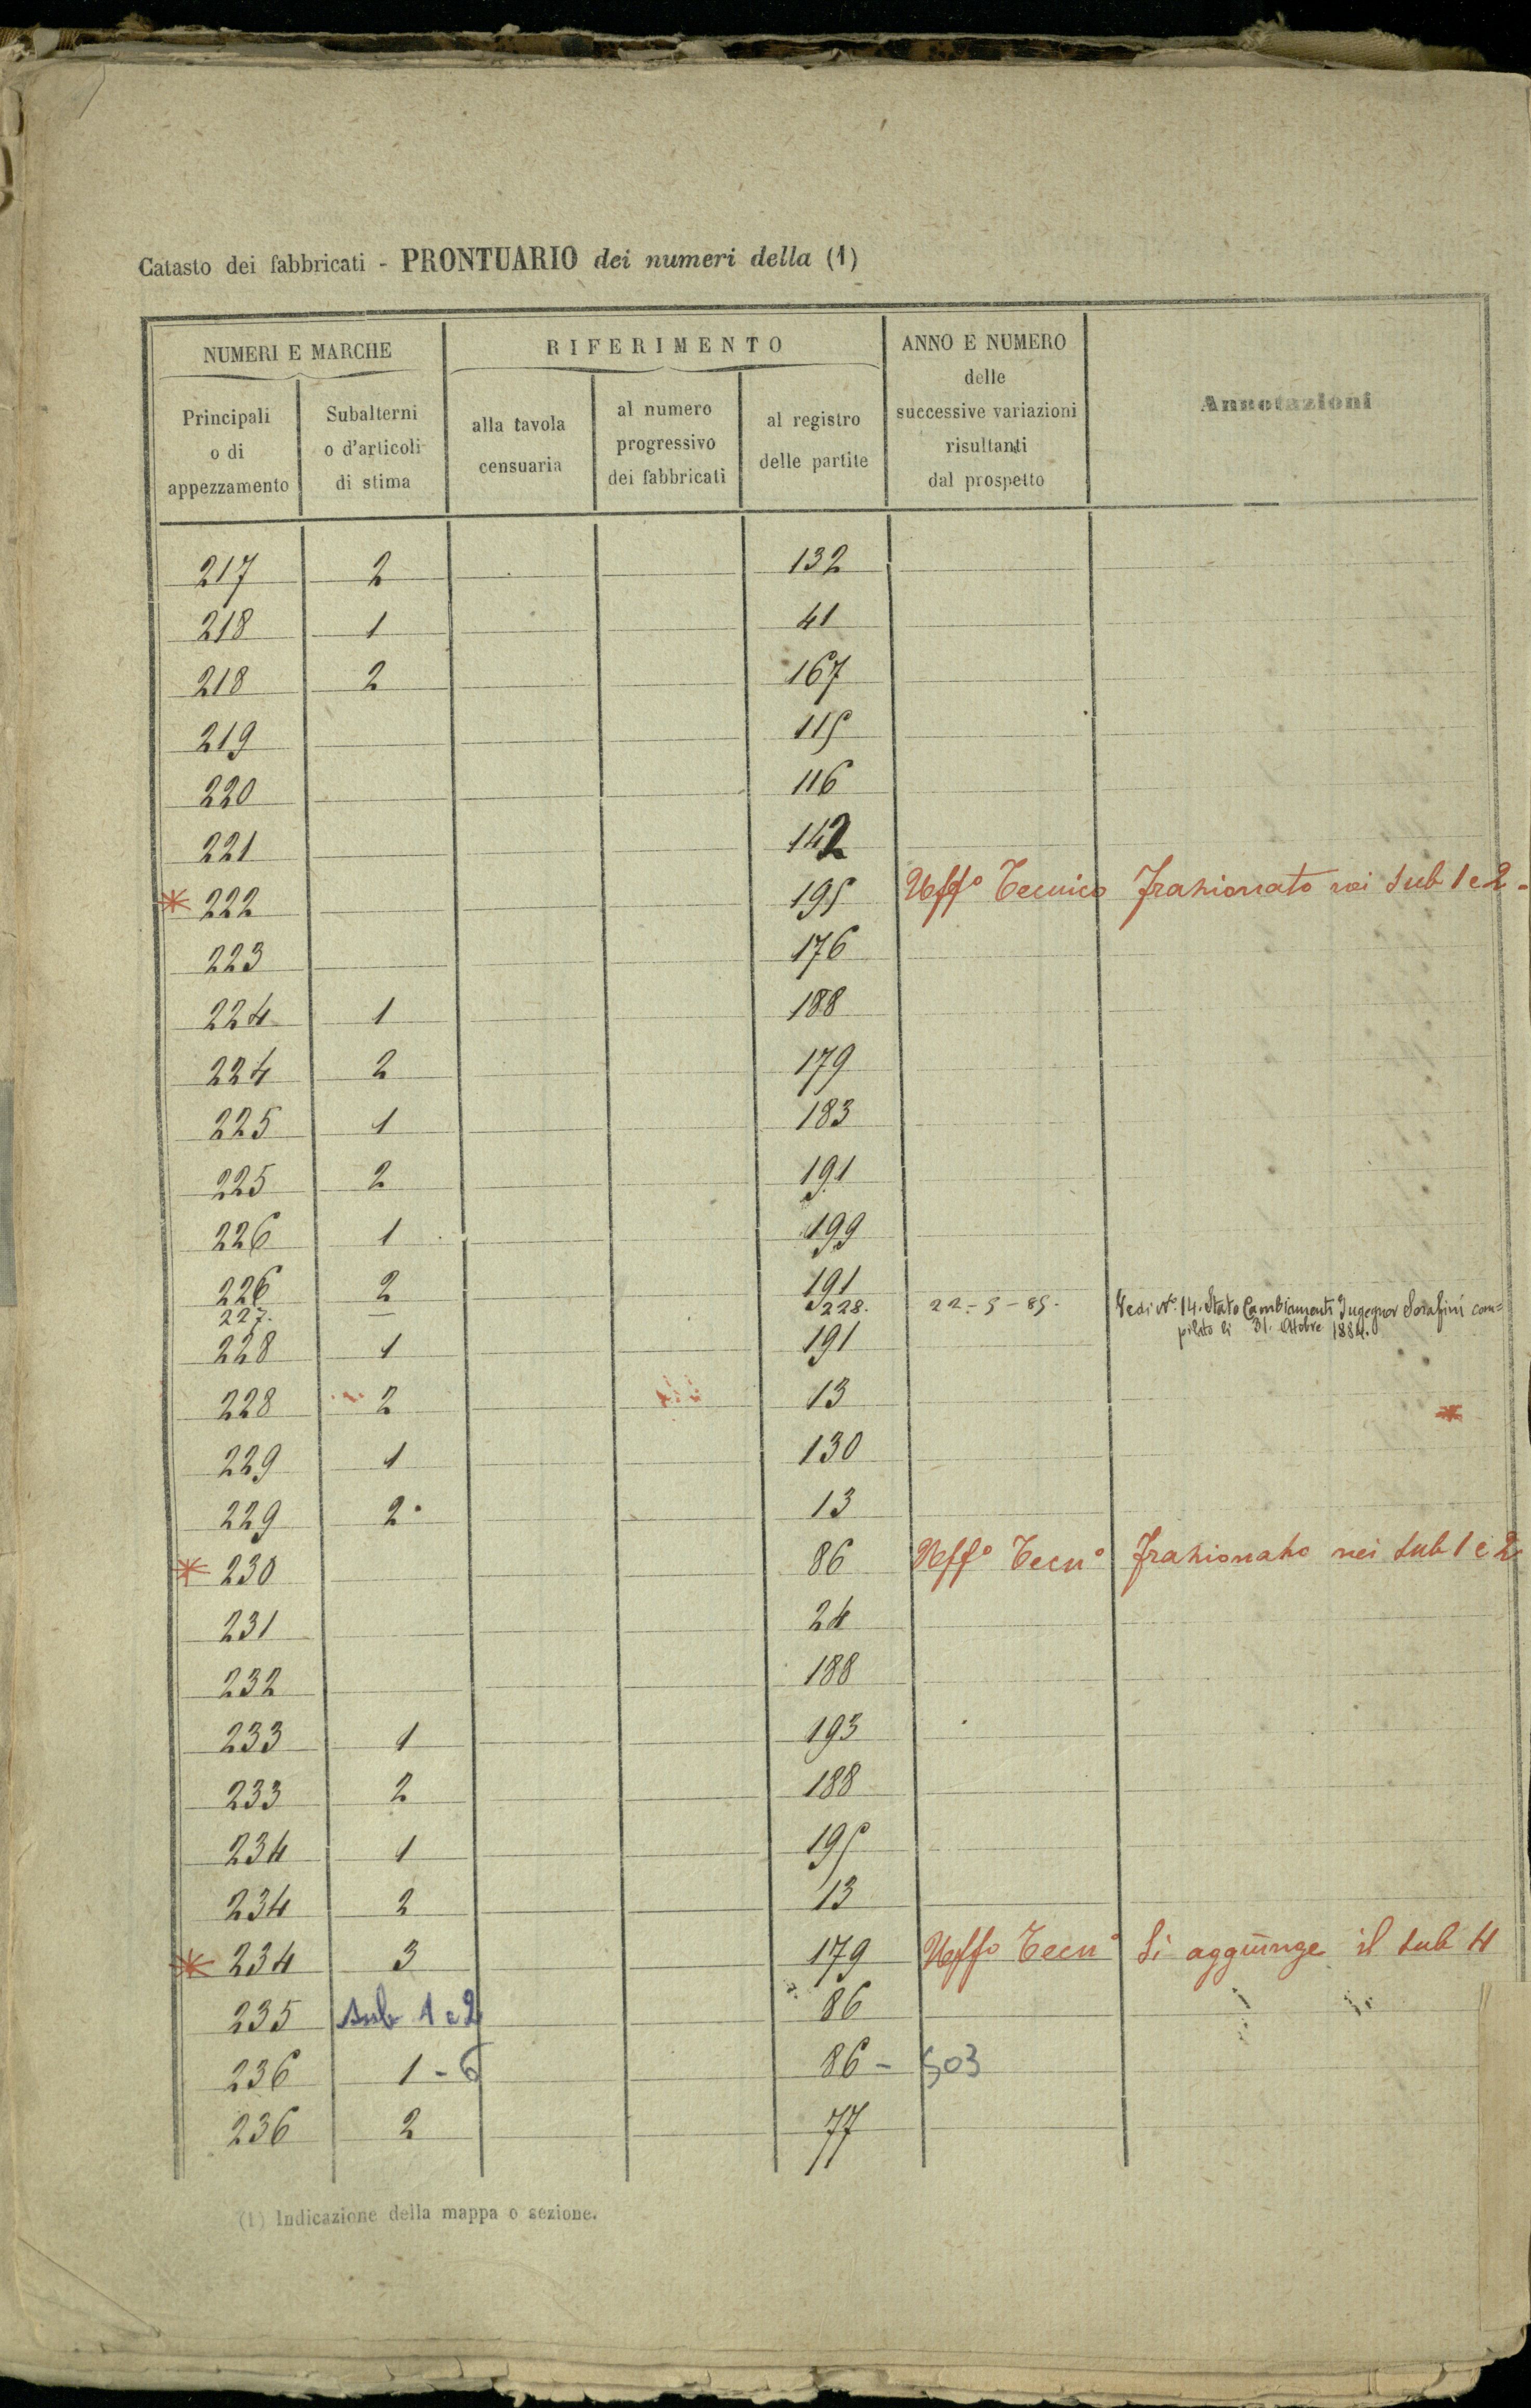 Catasto dei fabbricati - PRONTUARIO dei numeri della (1)
NUMERI E MARCHE
RIFERIMENTO
ANNO E NUMERO
delle
successive variazioni
risultanti
dal prospetto
Annotazioni
Principali
o di
appezzamento
Subalterni
o d'articoli
di stima
alla tavola
censuaria
al numero
progressivo
dei fabbricati
al registro
delle partite
217 2 132
218 1 41
218 2 167
219 115
220 116
221 142
* 222 195 Uffo Tecnico Frazionato nei sub 1 e 2 -
223 176
224 1 188
224 2 179
225 1 183
225 2 191
226 1 199
226 2 191
227. — 228. 22-5-85. Vedi No. 14. Stato Cambiamenti Ingegnor Serafini com=
pilato li 31. Ottobre 1884.
228 1 191
228 2 13 *
229 1 130
229 2 13
* 230 86 Uffo Tecno frazionato nei sub 1 e 2
231 24
232 188
233 1 193
233 2 188
234 1 195
234 2 13
* 234 3 179 Uffo Tecno Si aggiunge il sub 4
235 sub 1 e 2 86
236 1 - 6 86 - 503
236 2 77
(1) Indicazione della mappa o sezione.